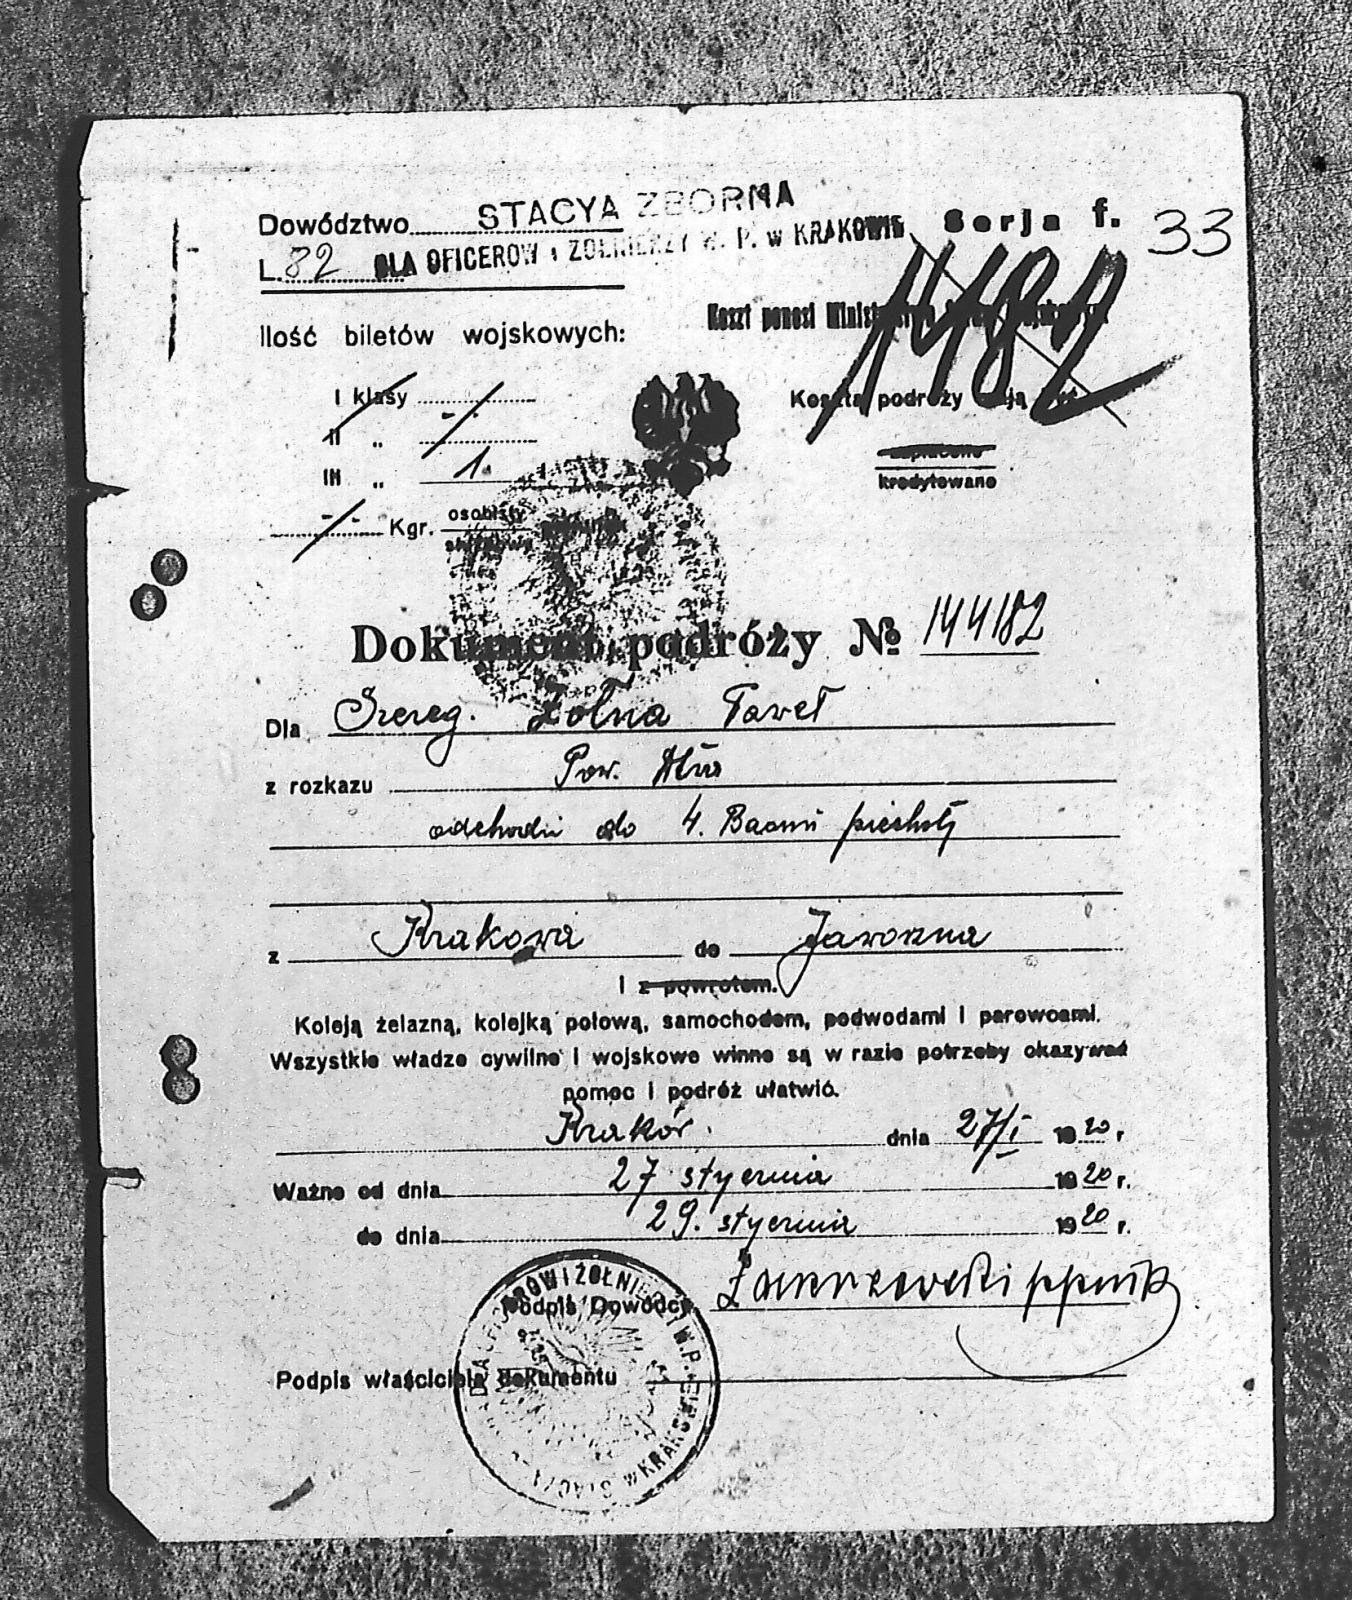 Dowództwo STACYA ZBORNA
Serja f. 33
L. 82 DLA OFICERÓW i ŻOŁNIERZY W. P. w KRAKOWIE
1182
Koszt ponosi
Ilość biletów wojskowych:
I klasy
Koszta podróży
II „
III „ 1.
zapłacono
kredytowano
Kgr. osobisty
służbowy
Dokument podróży № 144182
Dla Szereg. Żołna Paweł
z rozkazu Pow.
odchodzi do 4. Baonu piechoty
z Krakowa do Jaworzna
i z powrotem.
Koleją żelazną, kolejką polową, samochodem, podwodami i parowcami.
Wszystkie władze cywilne i wojskowe winne są w razie potrzeby okazywać
pomoc i podróż ułatwić.
Kraków. dnia 27/I 1920 r
Ważne od dnia 27 stycznia 1920 r.
do dnia 29. stycznia 1920 r.
Podpis Dowódcy
Podpis właściciela dokumentu
DLA OFICERÓW I ŻOŁNIERZY W.P. w KRAKOWIE STACYA